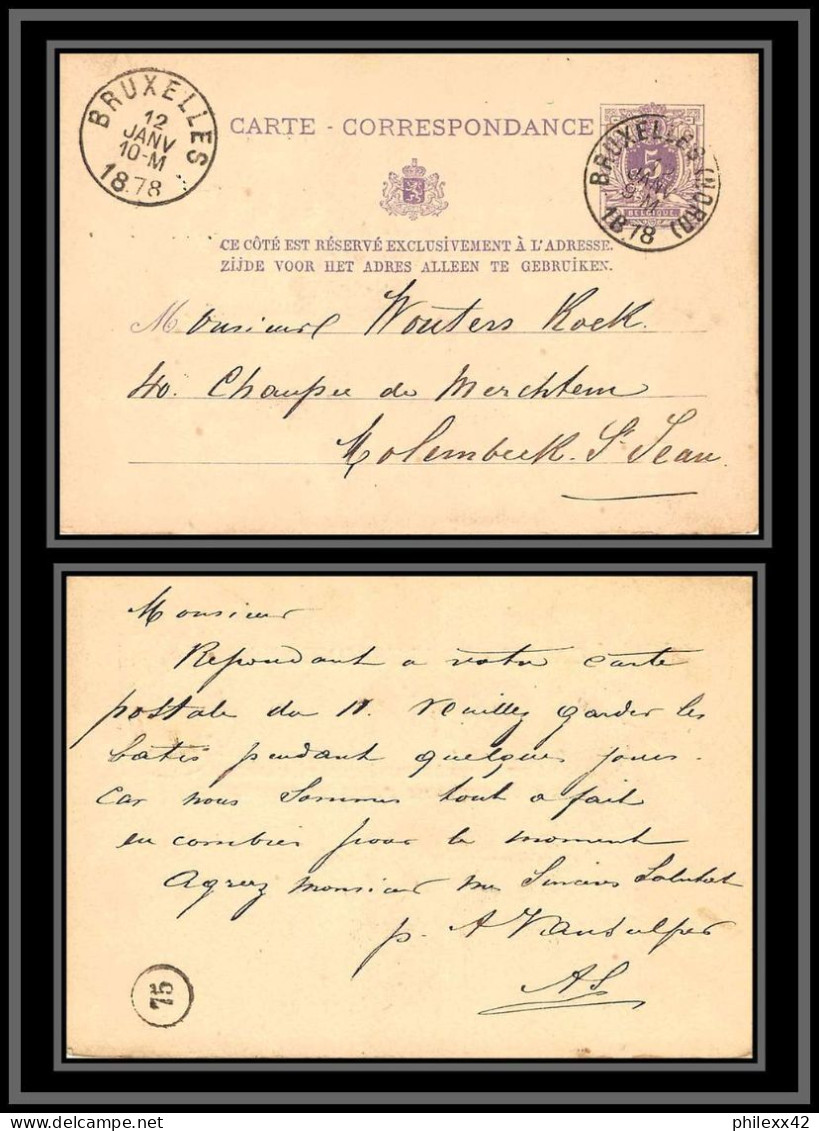 BRUXELLES
12
JANV
10-M
1878
CARTE - CORRESPONDANCE
5
BELGIQUE
BRUXELLES (NORD)
JANV
9-M
1878
CE CÔTÉ EST RÉSERVÉ EXCLUSIVEMENT À L'ADRESSE.
ZIJDE VOOR HET ADRES ALLEEN TE GEBRUIKEN.
Monsieur Wouters Koek.
40. Chaussee de Merchtem
Molembeek. St Jean.
Monsieur
Repondant a votre carte
postale du 11. Veuillez garder les
pendant quelques jours.
car nous sommes tout a fait
encombres pour le moment
Agreez monsieur mes Sinceres Salutat
p. A
AS
75
www.delcampe.net
philexx42